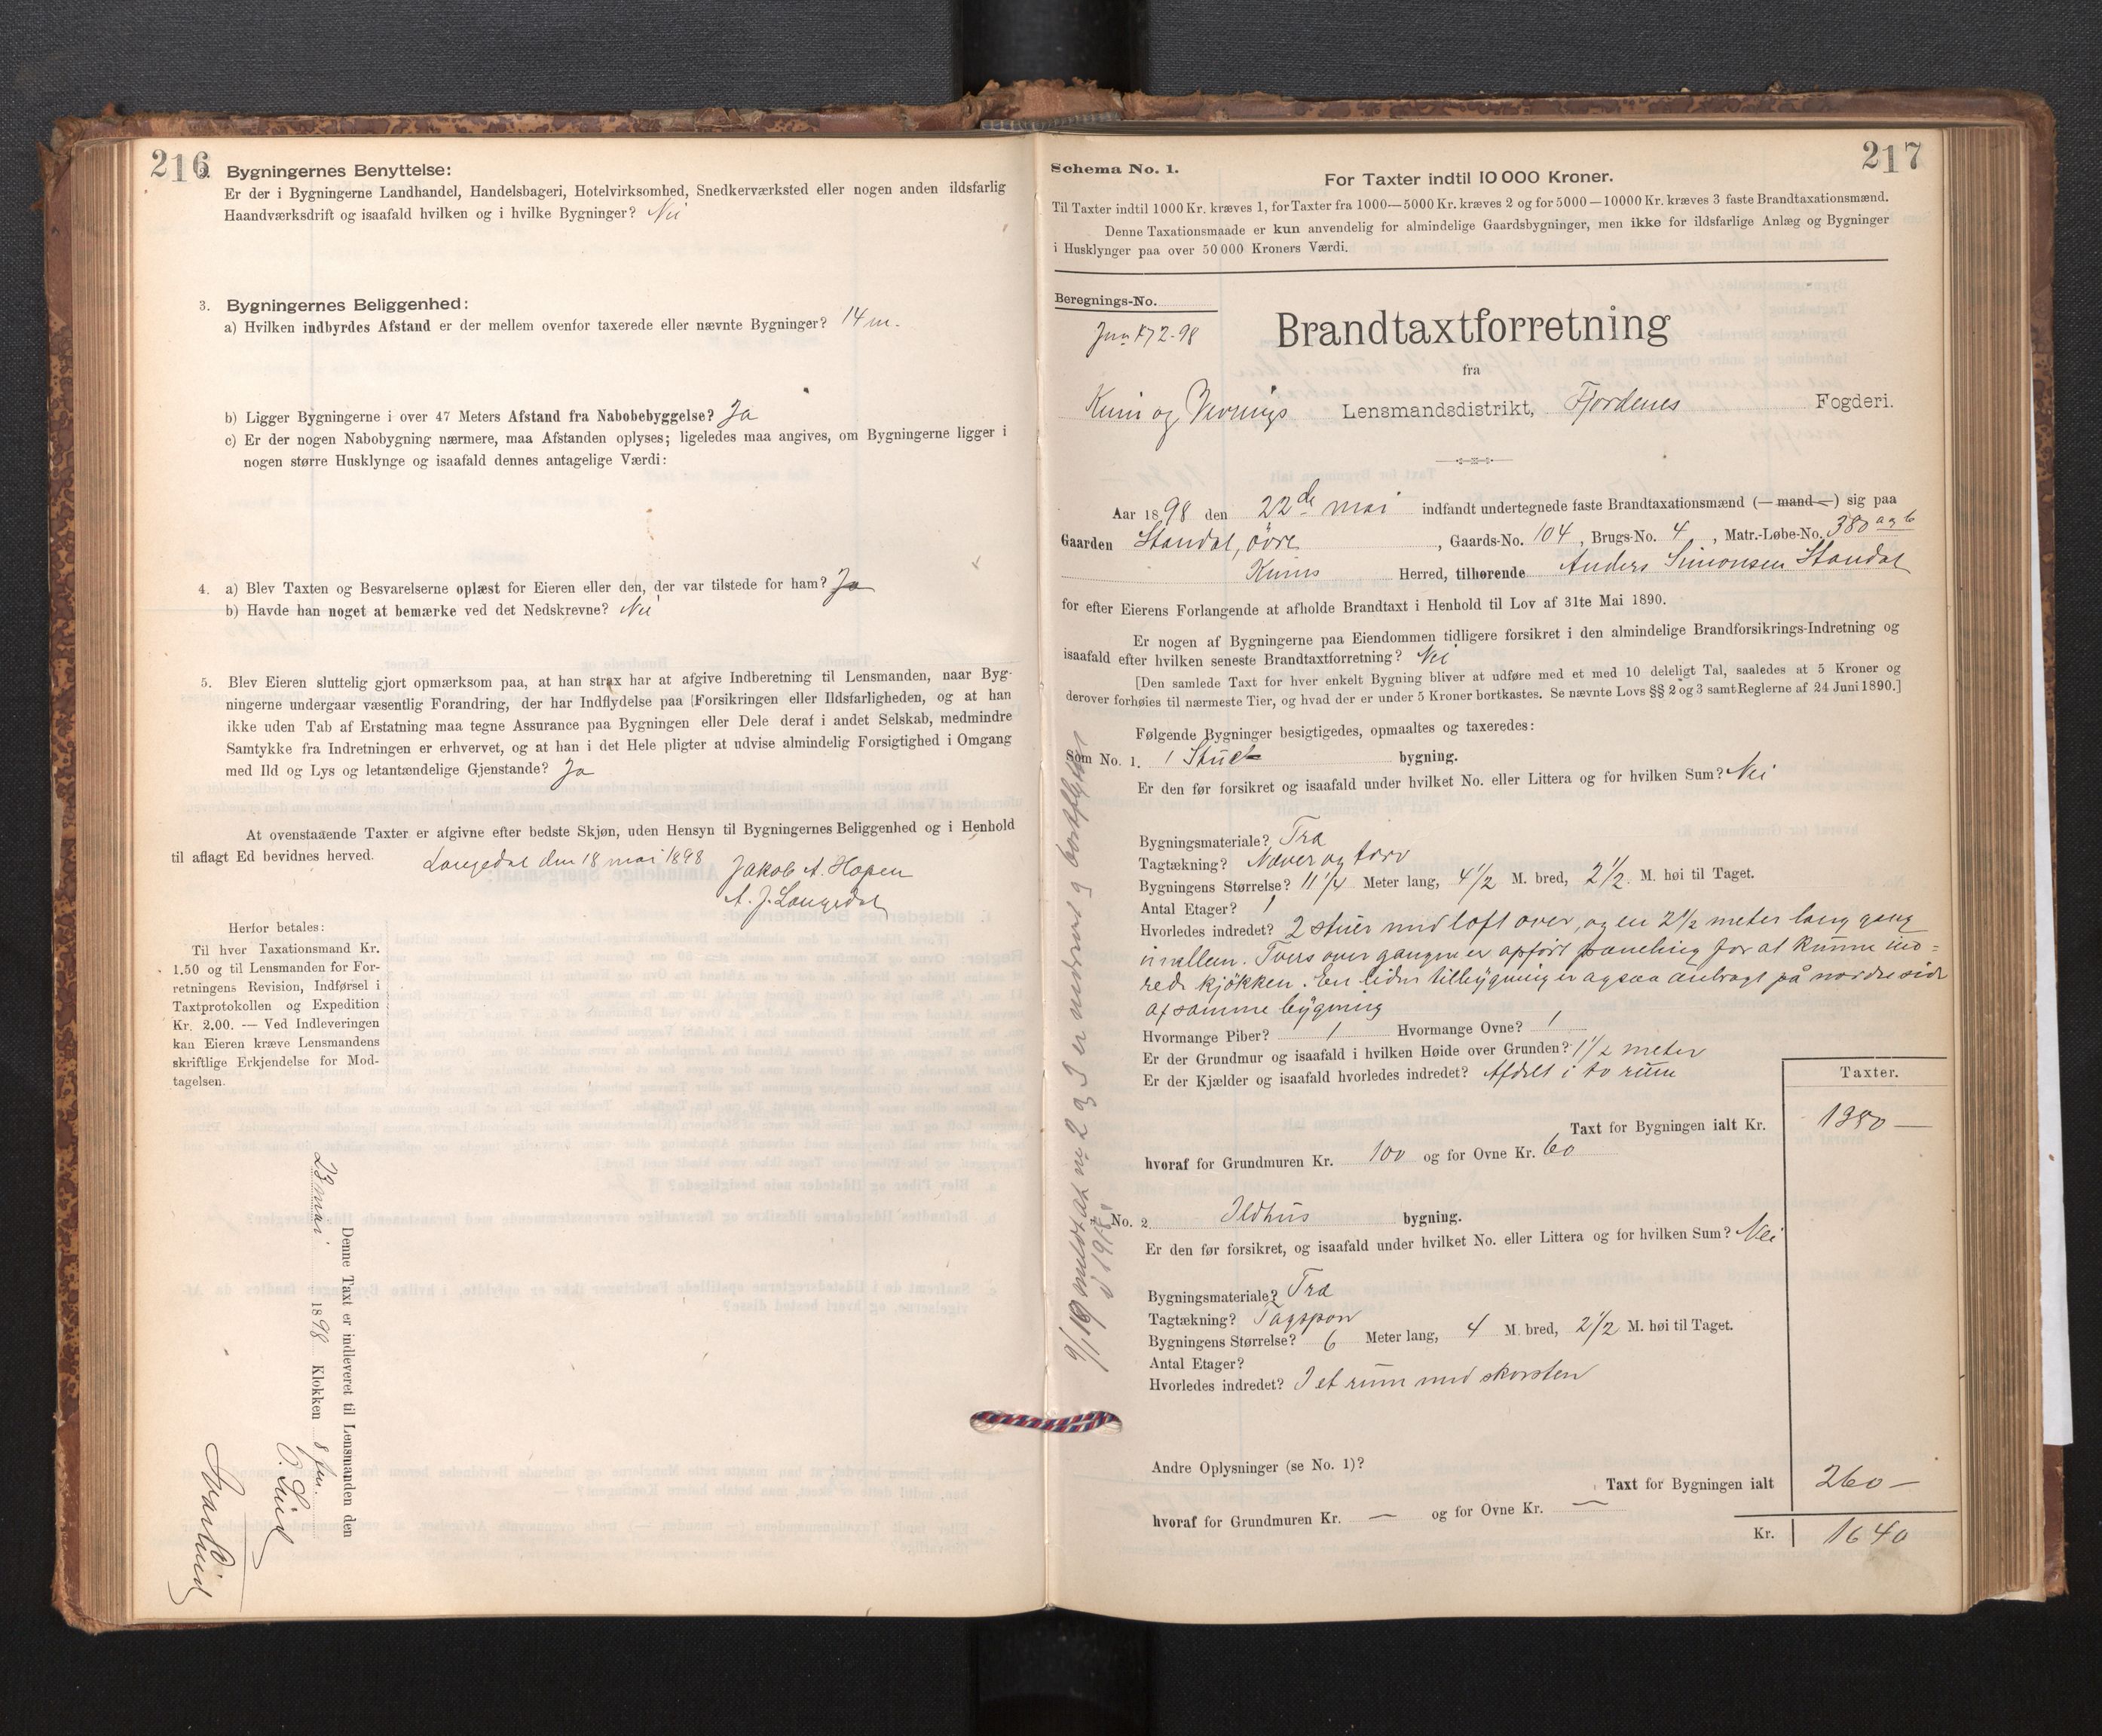 216
Bygningernes Benyttelse:
Er der i Bygningerne Landhandel, Handelsbageri, Hotelvirksomhed, Snedkerværksted eller nogen anden ildsfarlig
Haandværksdrift og isaafald hvilken og i hvilke Bygninger? Nei
3. Bygningernes Beliggenhed:
a) Hvilken indbyrdes Afstand er der mellem ovenfor taxerede eller nævnte Bygninger? 14 m.
b) Ligger Bygningerne i over 47 Meters Afstand fra Nabobebyggelse? Ja
c) Er der nogen Nabobygning nærmere, maa Afstanden oplyses; ligeledes maa angives, om Bygningerne ligger i
nogen større Husklynge og isaafald dennes antagelige Værdi:
4. a) Blev Taxten og Besvarelserne oplæst for Eieren eller den, der var tilstede for ham? Ja
b) Havde han noget at bemærke ved det Nedskrevne? Nei
5. Blev Eieren sluttelig gjort opmærksom paa, at han strax har at afgive Indberetning til Lensmanden, naar Byg-
ningerne undergaar væsentlig Forandring, der har Indflydelse paa Forsikringen eller Ildsfarligheden, og at han
ikke uden Tab af Erstatning maa tegne Assurance paa Bygningen eller Dele deraf i andet Selskab, medmindre
Samtykke fra Indretningen er erhvervet, og at han i det Hele pligter at udvise almindelig Forsigtighed i Omgang
med Ild og Lys og letantændelige Gjenstande? Ja
At ovenstaaende Taxter er afgivne efter bedste Skjøn, uden Hensyn til Bygningernes Beliggenhed og i Henhold
til aflagt Ed bevidnes herved. Langedal den 18 mai 1898
Jakob A. Hopen
A. J. Langedal
Herfor betales:
Til hver Taxationsmand Kr.
1.50 og til Lensmanden for For-
retningens Revision, Indførsel i
Taxtprotokollen og Expedition
Kr. 2.00. — Ved Indleveringen
kan Eieren kræve Lensmandens
skriftlige Erkjendelse for Mod-
tagelsen.
Denne Taxt er indleveret til Lensmanden den
23 mai 1898 Klokken 8 fm.
217
Schema No. 1.
For Taxter indtil 10 000 Kroner.
Til Taxter indtil 1000 Kr. kræves 1, for Taxter fra 1000—5000 Kr. kræves 2 og for 5000—10000 Kr. kræves 3 faste Brandtaxationsmænd.
Denne Taxationsmaade er kun anvendelig for almindelige Gaardsbygninger, men ikke for ildsfarlige Anlæg og Bygninger
i Husklynger paa over 50 000 Kroners Værdi.
Beregnings-No.
Brandtaxtforretning
fra
Kinn og Lensmandsdistrikt, Fjordenes Fogderi.
Aar 1898 den 22de mai indfandt undertegnede faste Brandtaxationsmænd (— mand —) sig paa
Gaarden Standal, övre, Gaards-No. 104, Brugs-No. 4, Matr.-Løbe-No. 380 a og b
Kinns Herred, tilhørende Anders Simonsen Standal
for efter Eierens Forlangende at afholde Brandtaxt i Henhold til Lov af 31te Mai 1890.
Er nogen af Bygningerne paa Eiendommen tidligere forsikret i den almindelige Brandforsikrings-Indretning og
isaafald efter hvilken seneste Brandtaxtforretning? Nei
[Den samlede Taxt for hver enkelt Bygning bliver at udføre med et med 10 deleligt Tal, saaledes at 5 Kroner og
derover forhøies til nærmeste Tier, og hvad der er under 5 Kroner bortkastes. Se nævnte Lovs §§ 2 og 3 samt Reglerne af 24 Juni 1890.]
Følgende Bygninger besigtigedes, opmaaltes og taxeredes:
Som No. 1. 1 Stue bygning.
Er den før forsikret og isaafald under hvilket No. eller Littera og for hvilken Sum? Nei
Bygningsmateriale? Træ
Tagtækning? Næver og torv
Bygningens Størrelse? 11 1/4 Meter lang, 4 1/2 M. bred, 2 1/2 M. høi til Taget.
Antal Etager? 1
Hvorledes indredet? 2 stuer med loft over, og en 2 1/2 meter lang gang
imellem. Tvers over gangen er opført paneling for at kunne ind-
rede kjökken. En liden tilbygning er ogsaa anbragt på nordre side
af samme bygning
Hvormange Piber? 1 Hvormange Ovne? 1
Er der Grundmur og isaafald i hvilken Høide over Grunden? 1 1/2 meter
Er der Kjælder og isaafald hvorledes indredet? Afdelt i to rum
Taxter.
Taxt for Bygningen ialt Kr. 1380 —
hvoraf for Grundmuren Kr. 100 og for Ovne Kr. 60
" No. 2 Ildhus bygning.
Er den før forsikret, og isaafald under hvilket No. eller Littera og for hvilken Sum? Nei
Bygningsmateriale? Træ
Tagtækning? Tagspon
Bygningens Størrelse? 6 Meter lang, 4 M. bred, 2 1/2 M. høi til Taget.
Antal Etager?
Hvorledes indredet? I et rum med skorsten
Andre Oplysninger (se No. 1)?
Taxt for Bygningen ialt 260 —
hvoraf for Grundmuren Kr. — og for Ovne Kr. —
Kr. 1640